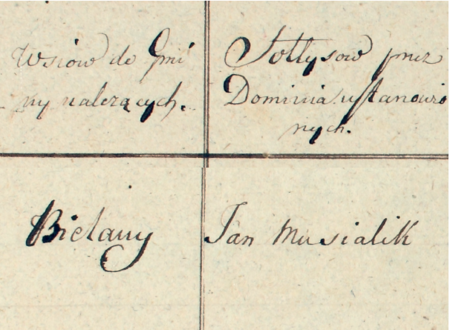 Wsiów do Gmi
ny należących.
Sołtysów przez
Dominia ustanowio
nych.
Bielany
Jan Musialik